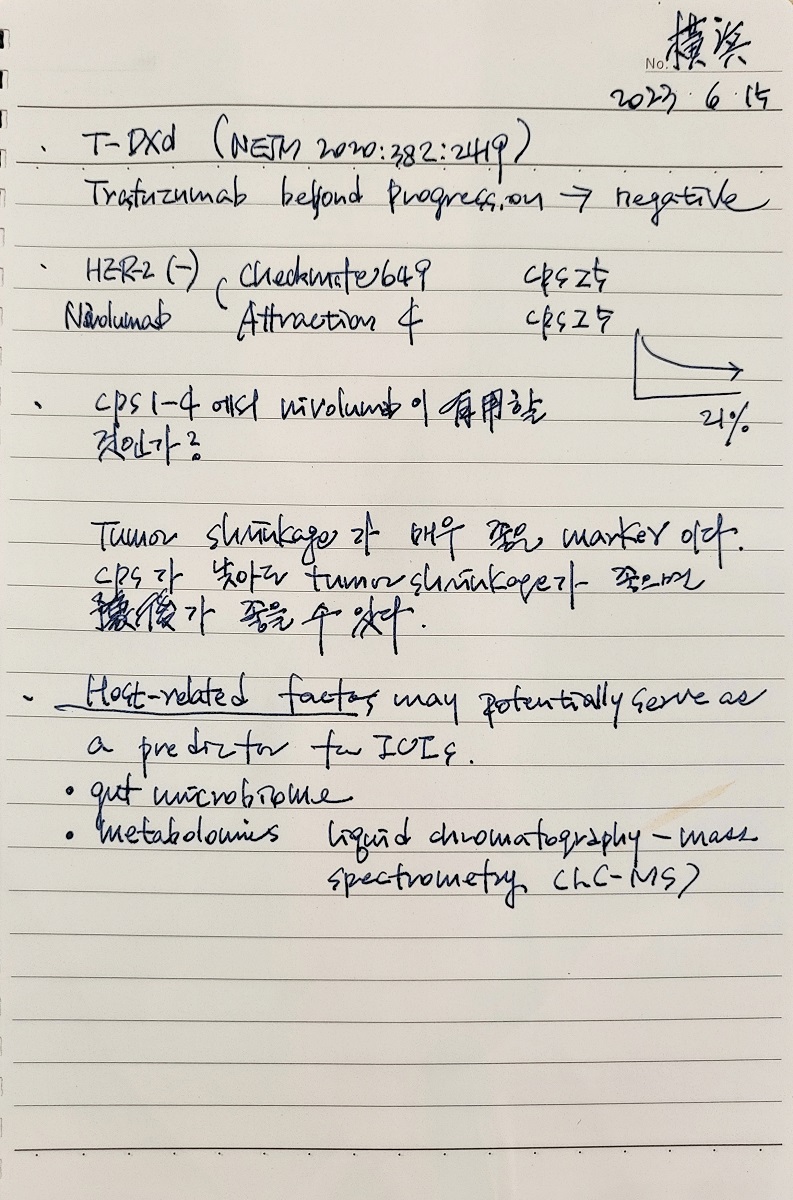 No. 横浜
2023. 6. 15
· T-DXd (NEJM 2020:382:2419)
Trastuzumab beyond progression → negative
· HER-2 (-) ( Checkmate 649 CPS≥5
Nivolumab Attraction 4 CPS≥5
21%
· CPS 1-4 에서 nivolumab이 有用할
것인가?
Tumor shrinkage가 매우 좋은 marker이다.
CPS가 낮아도 tumor shrinkage가 좋으면
豫後가 좋을 수 있다.
· Host-related factors may potentially serve as
a predictor for ICIs.
• gut microbiome
• metabolomics liquid chromatography-mass
spectrometry (LC-MS)